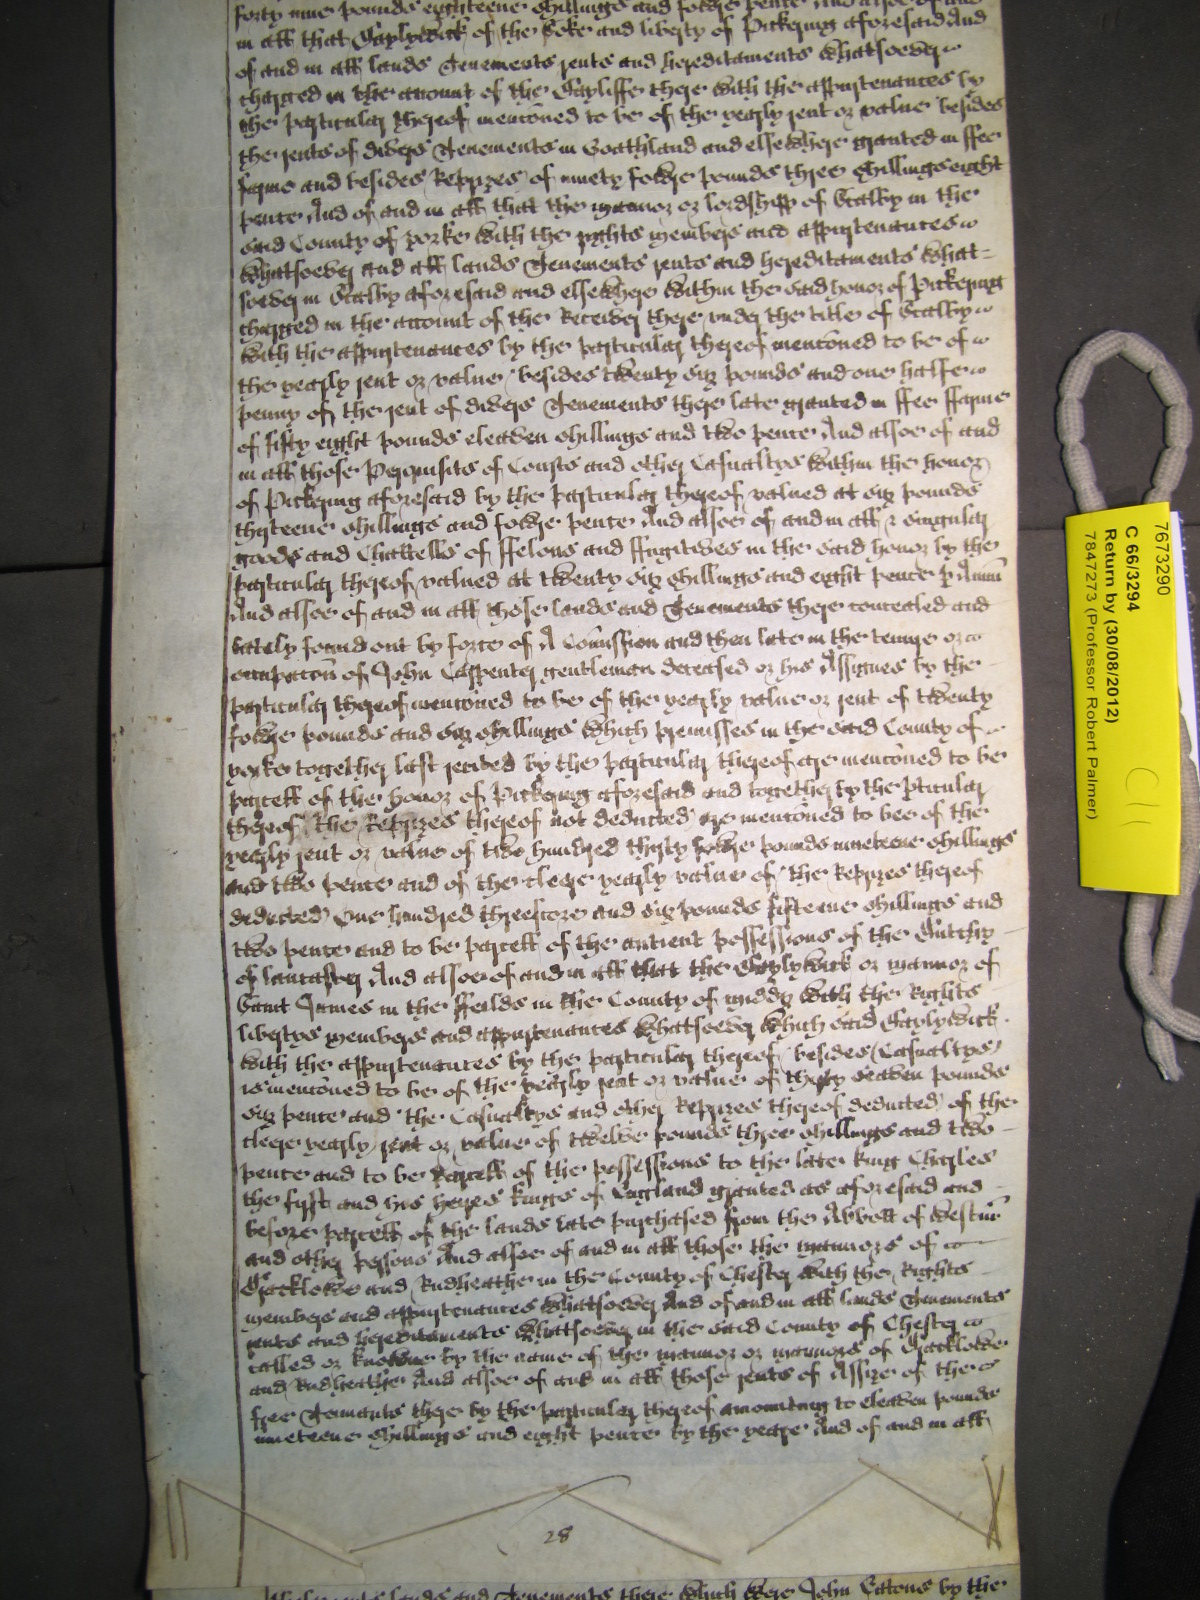 forty nine pounds eighteene shillings and fowre pence And alsoe of and
in all that Baylywick of the Soke and liberty of Pickering aforesaid And
of and in all lands Tenements rents and hereditaments whatsoever
charged in the account of the Bayliffe there with the appurtenances by
the particular thereof mencioned to be of the yearly rent or value besides
the rents of divers Tenements in Goathland and elsewhere granted in ffee
farme and besides Reprizes of ninety fowre pounds three shillings eight
pence And of and in all that the mannor or lordshipp of Scalby in the
said County of Yorke with the rights members and appurtenances
whatsoever and all lands Tenements rents and hereditaments what-
soever in Scalby aforesaid and elsewhere within the said honor of Pickering
charged in the account of the Receiver there under the title of Scalby
with the appurtenances by the particular thereof mentioned to be of
the yearly rent or value besides twenty six pounds and one halfe
penny of the rent of divers Tenements there late granted in ffee ffarme
of fifty eight pounds eleaven shillings and two pence And alsoe of and
in all those Perquisits of Courts and other Casualtys within the honor
of Pickering aforesaid by the particular thereof valued at six pounds
thirteene shillings and fowre pence And alsoe of and in all & singular
goods and Chattells of ffelons and ffugitives in the said honor by the
particular thereof valued at twenty six shillings and eight pence p Annu
And alsoe of and in all those lands and Tenements there concealed and
lately found out by force of A Comission and then late in the tenure or
occupacon of John Carpenter gentleman deceased or his Assignes by the
particular thereof mencioned to be of the yearly value or rent of twenty
fowre pounds and six shillings which premisses in the said County of
yorke together last recited by the particular thereof are mencioned to be
parcell of the honor of Pickering aforesaid and together by the pticular
thereof the Reprizes thereof not deducted are mencioned to bee of the
yearly rent or value of two hundred thirty fowre pounds nineteene shillings
and two pence and of the cleere yearly value of the Reprizes thereof
deducted One hundred threescore and six pounds fifteene shillings and
two pence and to be parcell of the antient possessions of the Dutchy
of lancaster And alsoe of and in all that the Baylywick or mannor of
Saint James in the ffeilds in the County of Middx with the Rights
libertys members and appurtenances whatsoever which said Baylywick
with the appurtenances by the particular thereof besides Casualtys
is mencioned to be of the yearly rent or value of thirty seaven pounds
six pence and the Casualtys and other Reprizes thereof deducted of the
cleere yearly rent or value of twelve pounds three shillings and two
pence and to be parcell of the possessions to the late King Charles
the first and his heires Kings of England granted as aforesaid and
before parcell of the lands late purchased from the Abbott of Westmr
and other persons And alsoe of and in all those the mannors of
Shacklowe and Rudheathe in the County of Chester with the Rights
members and appurtenances whatsoever And of and in all lands Tenements
rents and hereditaments whatsoever in the said County of Chester
called or knowne by the name of the mannor or mannors of Shacklowe
and Rudheathe And alsoe of and in all those rents of Assize of the
free Tennants there by the particular thereof amounting to eleaven pounds
nineteene shillings and eight pence by the yeare And of and in all
28
lands and Tenements there which were John Eatons by the
7673290
C 66/3294
Return by (30/08/2012)
7847273 (Professor Robert Palmer)
C11